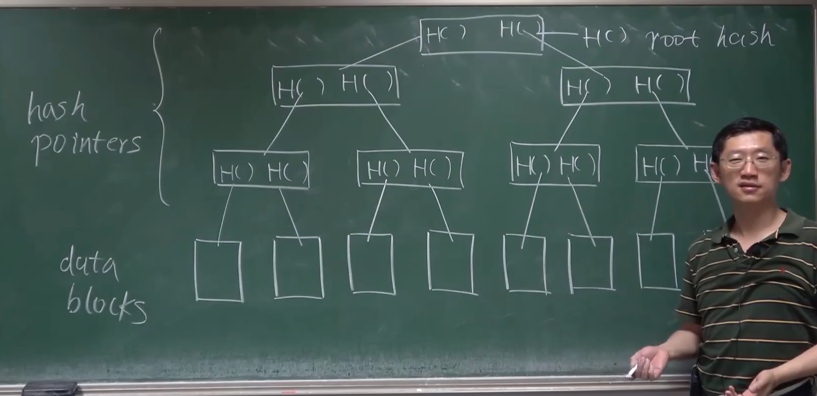 H( ) H( ) H( ) root hash
H( ) H( ) H( ) H( )
hash
pointers
H( ) H( ) H( ) H( ) H( ) H( ) H( ) H
data
blocks